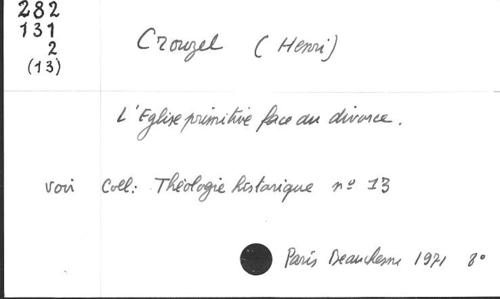 282
131
2
(13)
Crouzel (Henri)
L'Eglise primitive face au divorce.
voir Coll: Théologie historique nº 13
Paris Beauchesne 1971 8º